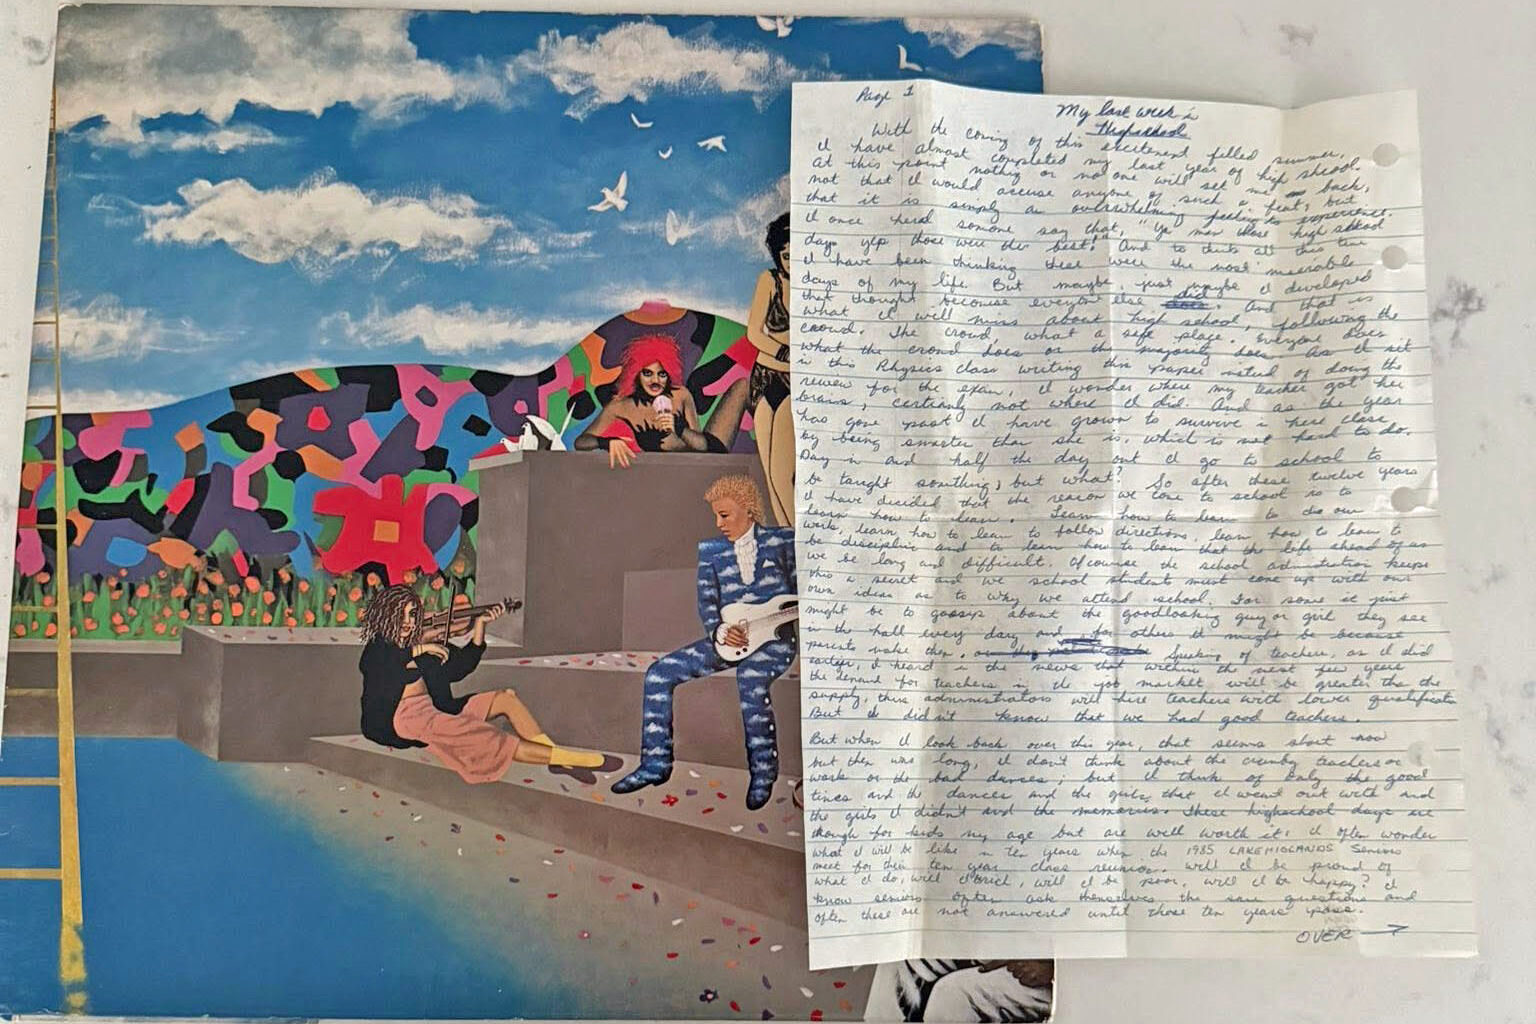 Page 1
My last week in
Highschool
With the coming of this excitement filled summer,
I have almost completed my last year of high school.
At this point nothing or no one will set me back,
not that I would accuse anyone of such a feat, but
that it is simply an overwhelming feeling to experience.
I once herd somone say that, "Ya man those high school
days yep those were the best." And to think all this time
I have been thinking these were the most miserable
days of my life. But maybe, just maybe I developed
that thought because everyone else did. And that is
what I will miss about high school, following the
crowd. The crowd, what a safe place. Everyone does
what the crowd does or the majority does. As I sit
in this Physics class writing this paper insted of doing the
review for the exam, I wonder where my teacher got her
brains, certianly not where I did. And as the year
has gone past I have grown to survive in here class
by being smarter than she is, which is not hard to do.
Day in and half the day out I go to school to
be taught somthing, but what? So after these twelve years
I have decided that the reason we come to school is to
learn how to learn. Learn how to learn to do our
work, learn how to learn to follow directions, learn how to learn to
be disciplin and to learn how to learn that the life ahead of us
will be long and difficult. Ofcourse the school adminstration keeps
this a secret and we school students must come up with our
own ideas as to why we attend school. For some it just
might be to gossip about the goodlooking guy or girl they see
in the hall every day and for others it might be because
parents make them. Speeking of teachers, as I did
earlyer, I heard in the news that within the next few years
the demand for teachers in the job market will be greater than the
supply, thus administrators will hire teachers with lower qualification
But I didn't know that we had good teachers.
But when I look back over this year, that seems short now
but then was long, I don't think about the crumby teachers or
work or the bad dances; but I think of only the good
times and the dances and the girls that I went out with and
the girls I didn't and the memories. These highschool days are
though for kids my age but are well worth it. I often wonder
what I will be like in ten years when the 1985 LAKE HIGHLANDS Seniors
meet for their ten year class reunion. will I be proud of
what I do, will I be rich, will I be poor, will I be happy? I
know seniors often ask themselves the same questions and
often these are not answered until those ten years pass.
OVER →